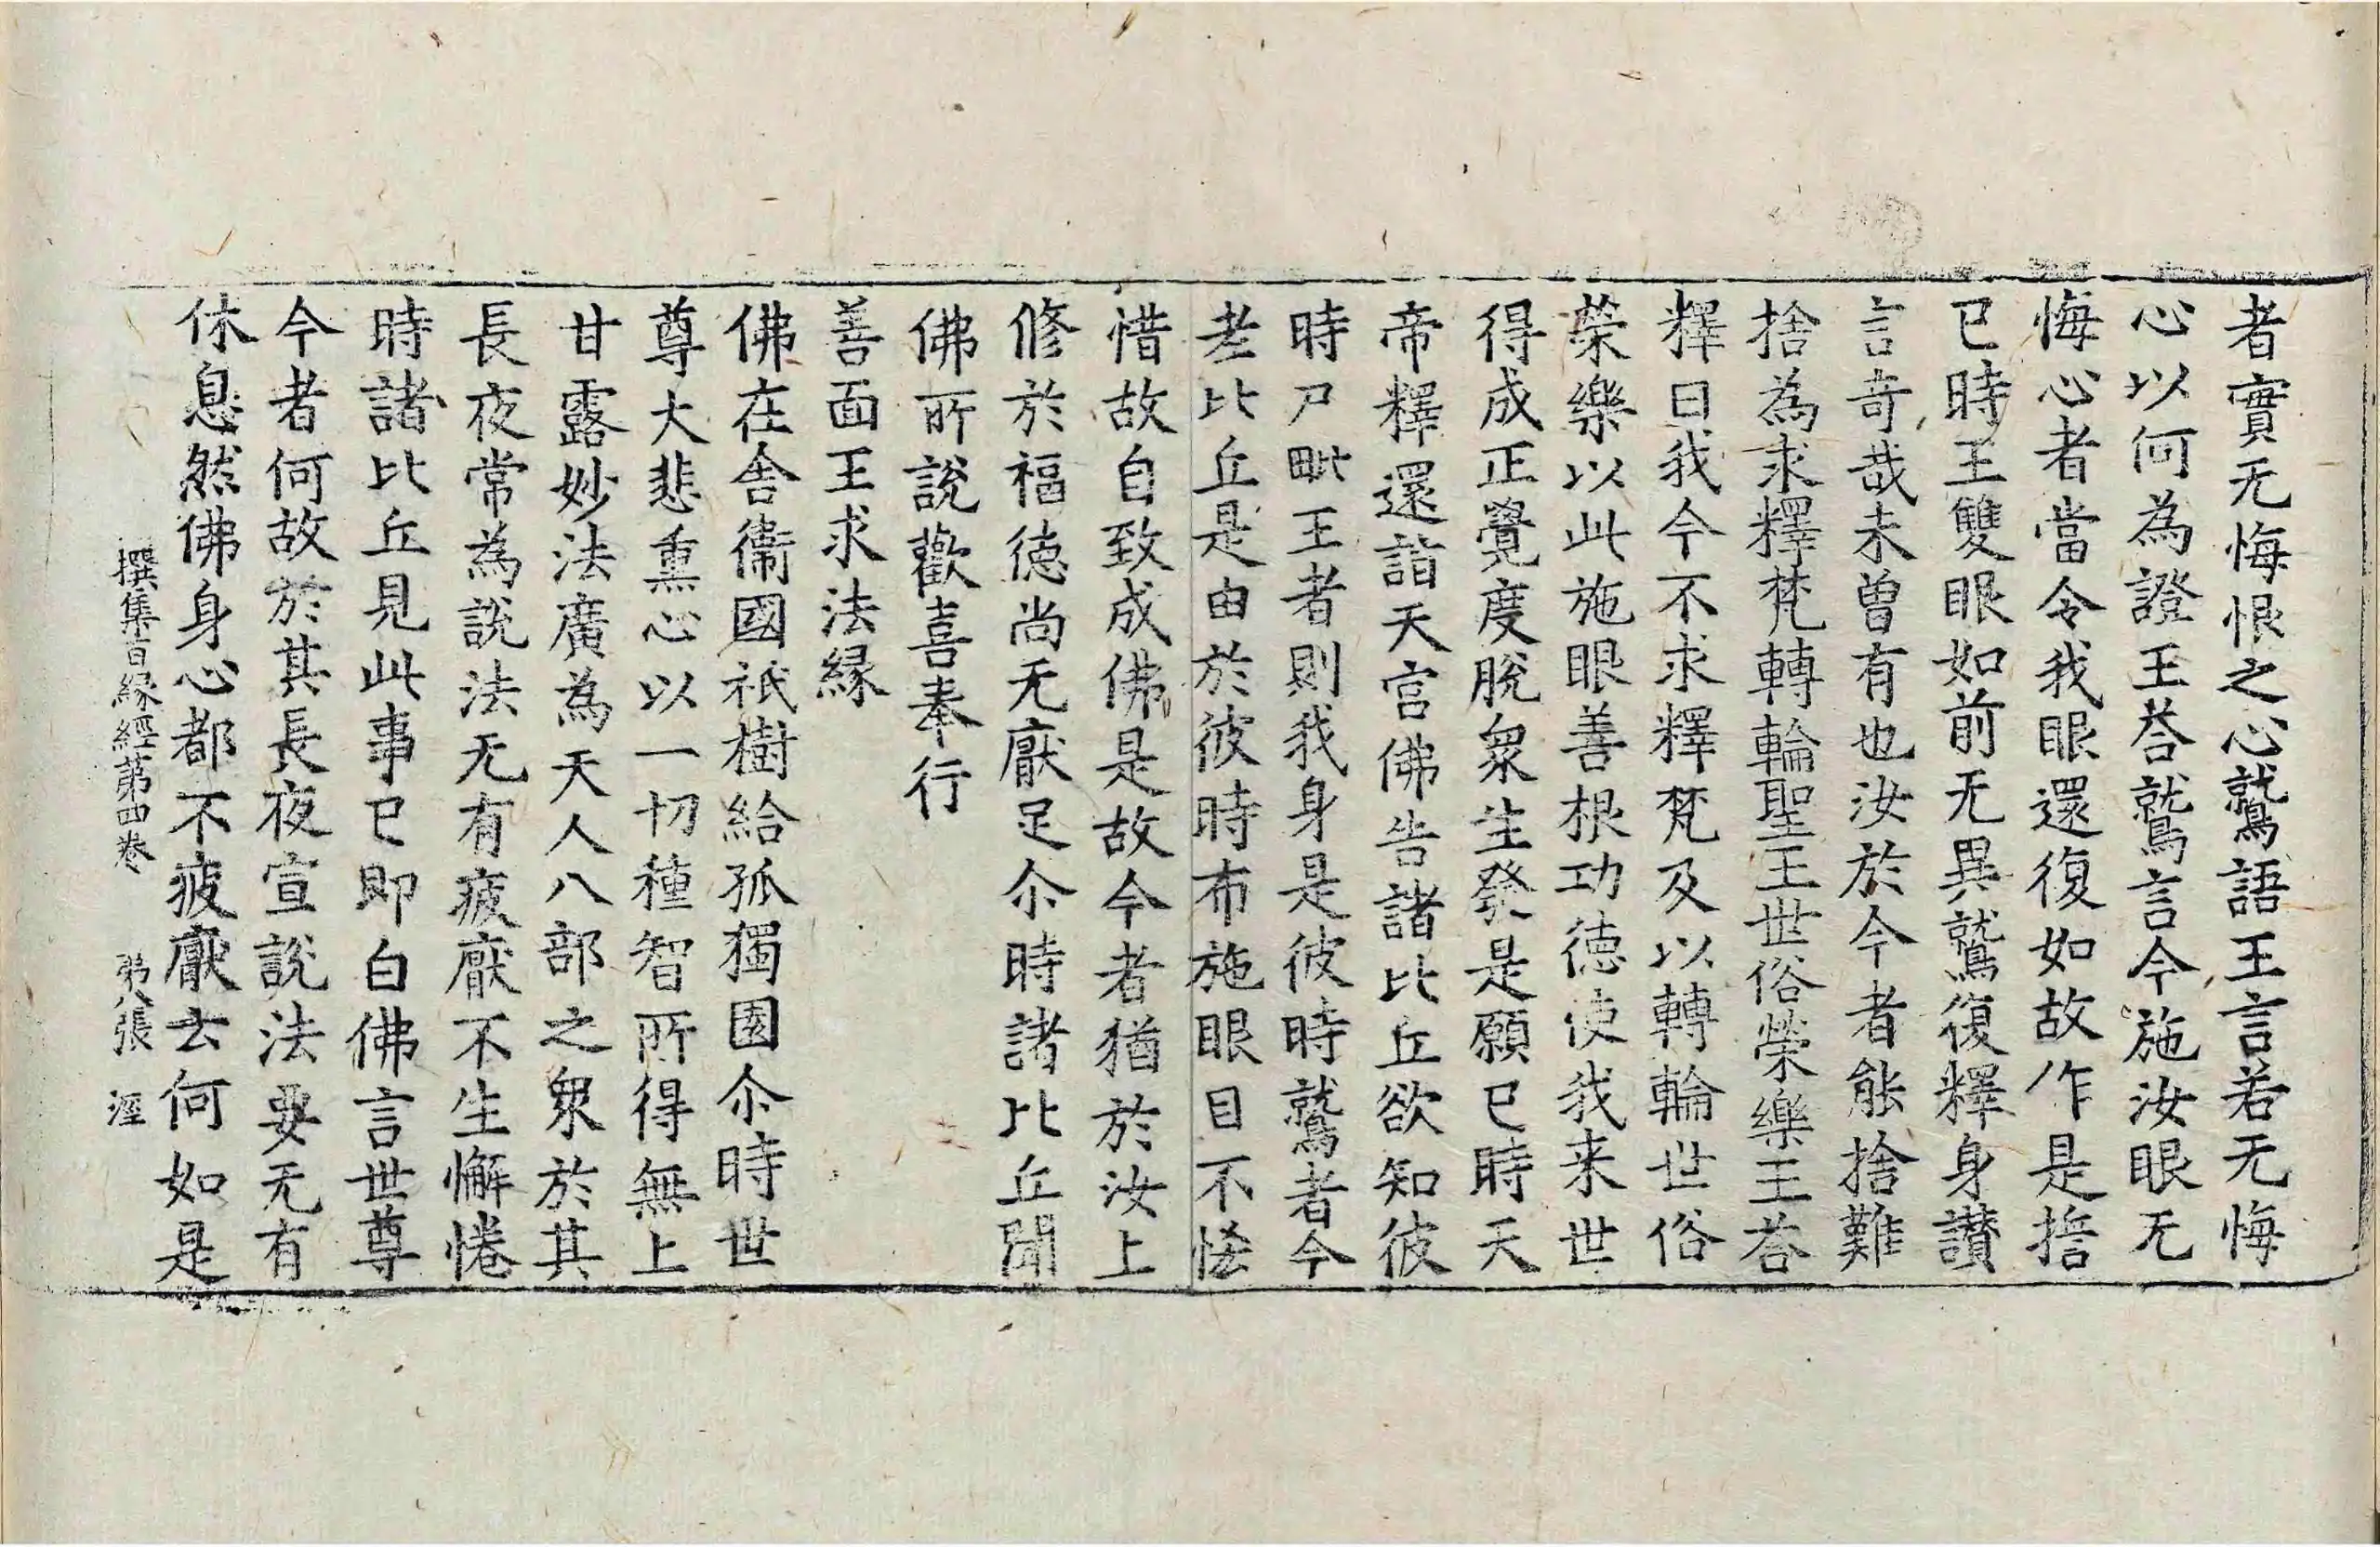 者實无悔恨之心鷲語王言若无悔
心以何為證王荅鷲言今施汝眼无
悔心者當令我眼還復如故作是擔
已時王雙眼如前无異鷲復釋身讃
言奇哉未曾有也汝於今者能捨難
捨為求釋梵轉輪聖王世俗榮樂王荅
釋曰我今不求釋梵及以轉輪世俗
榮樂以此施眼善根功德使我来世
得成正覺度脫衆生發是願已時天
帝釋還詣天宫佛告諸比丘欲知彼
時尸毗王者則我身是彼時鷲者今
老比丘是由於彼時布施眼目不恡
惜故自致成佛是故今者猶於汝上
修於福德尚无厭足尒時諸比丘聞
佛所說歡喜奉行
善面王求法縁
佛在舍衞國祇樹給孤獨園尒時世
尊大悲熏心以一切種智所得無上
甘露妙法廣為天人八部之衆於其
長夜常為說法无有疲厭不生懈惓
時諸比丘見此事已即白佛言世尊
今者何故於其長夜宣說法要无有
休息然佛身心都不疲厭云何如是
撰集百縁經第四卷 第八張 涇